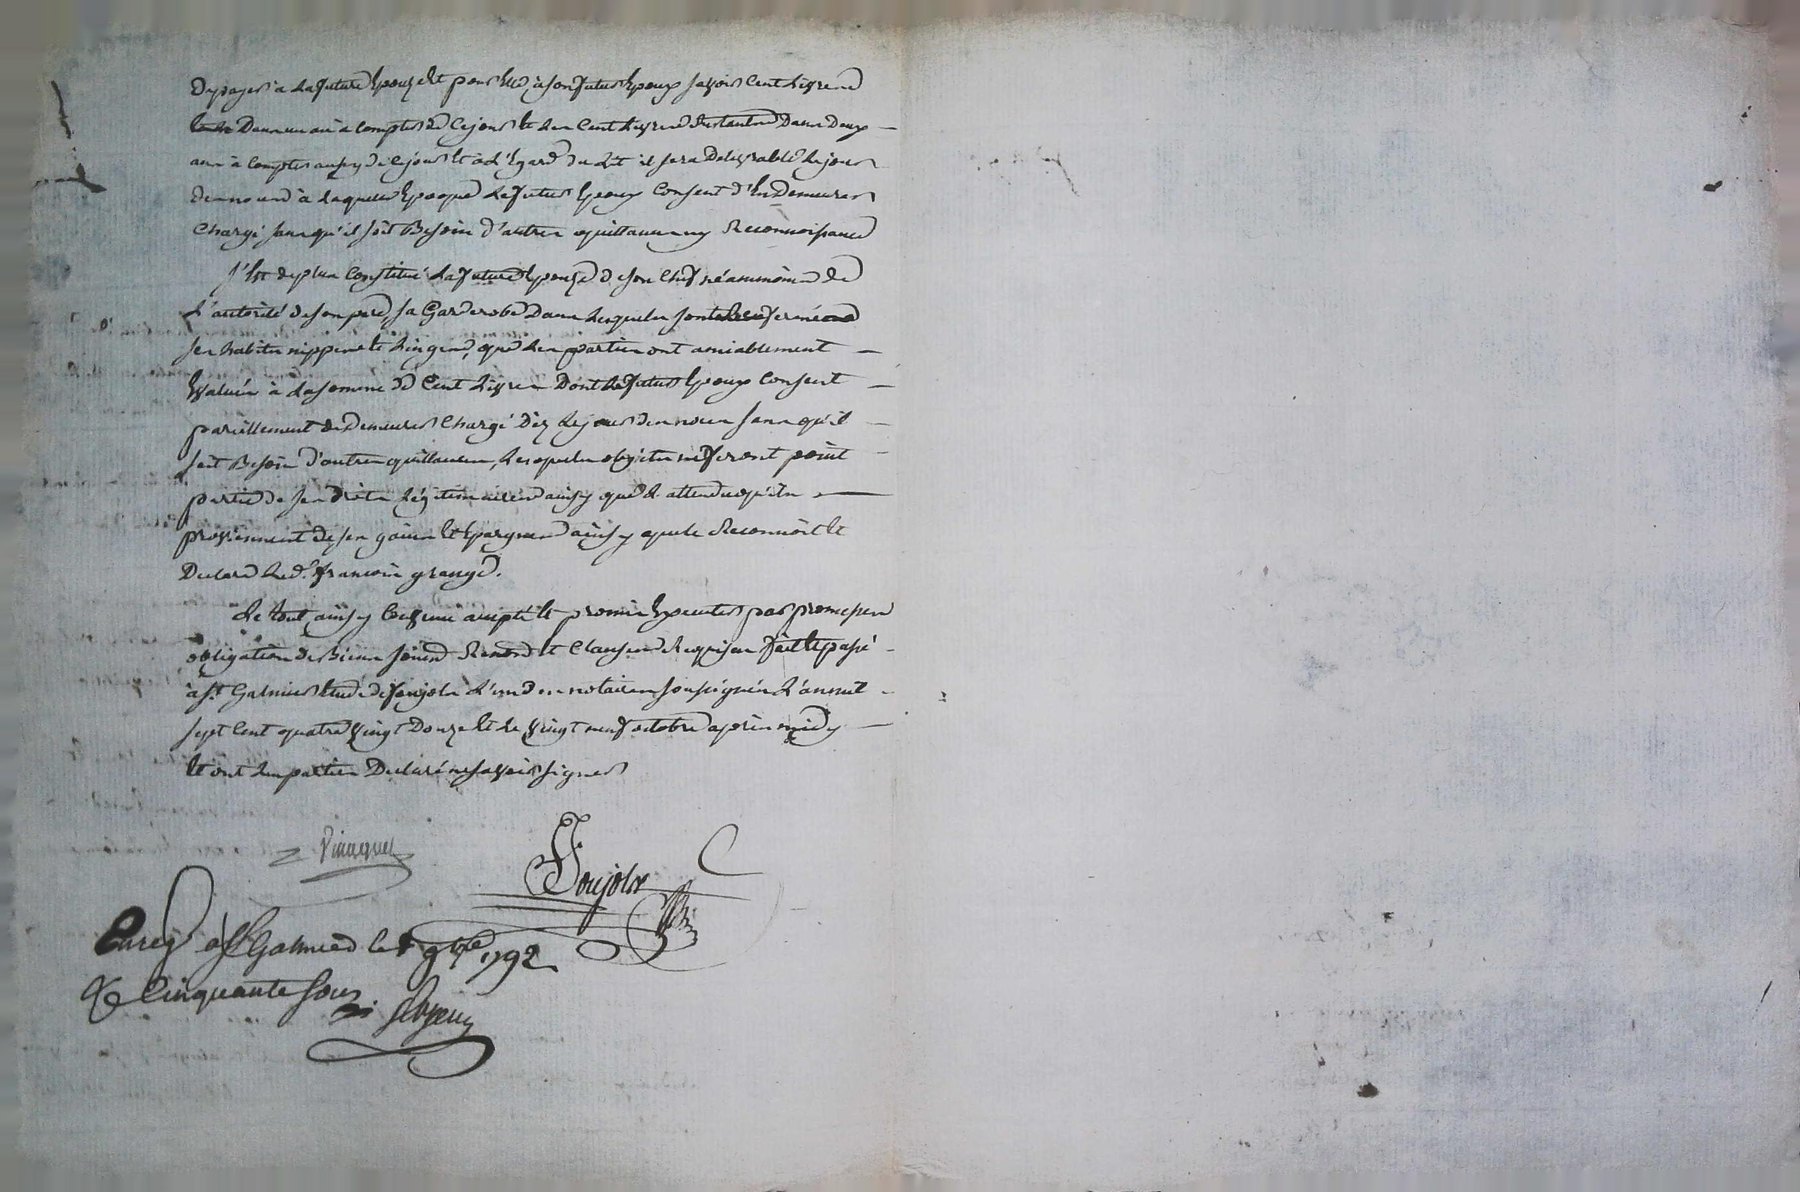 De payer à la future Epouze Et pour Elle à son futur Epoux savoir Cent Livres
Dans un an à compter de Ce jour Et les Cent Livres Restantes Dans Deux
ans à compter aussy de Ce jour Et à L'Egard du Lit il sera Delivrable Le jour
des noces à Laquelle Epoque Le futur Epoux Consent d'En Demeurer
Chargé sans qu'il soit Besoin d'autres quittances ny Reconnoissance
S'Est de plus Constitué La future Epouze de son Chef néanmoins de
L'autorité de son pere, sa Garderobe Dans Lesquelles sont Renfermées
ses habits nippes et Linges, que Les parties ont amiablement
Evalués à La somme de Cent Livres Dont Le futur Epoux Consent
pareillement de Demeurer Chargé Dez Le jour des noces sans qu'il
soit Besoin d'autres quittances, Lesquels objets ne feront point
partie de ses droits Légitimaires ainsy que attendu qu'ils
proviennent de ses gains Et Epargnes ainsy que le Reconnoit Et
Declare Led. françois grange.
Le tout ainsy Convenu accepté Et promis Executer par promesses
obligation de Biens soumis Renon et Clauses Requises fait Et passé
à St Galmier Etude de Poujols L'un des notaires soussignés L'an mil
sept Cent quatre vingt Douze Et Le vingt neuf octobre apres midy
Et ont Les parties Declaré ne savoir signer
Poujols
Enreg à St Galmier le 9bre 1792
R Cinquante sous